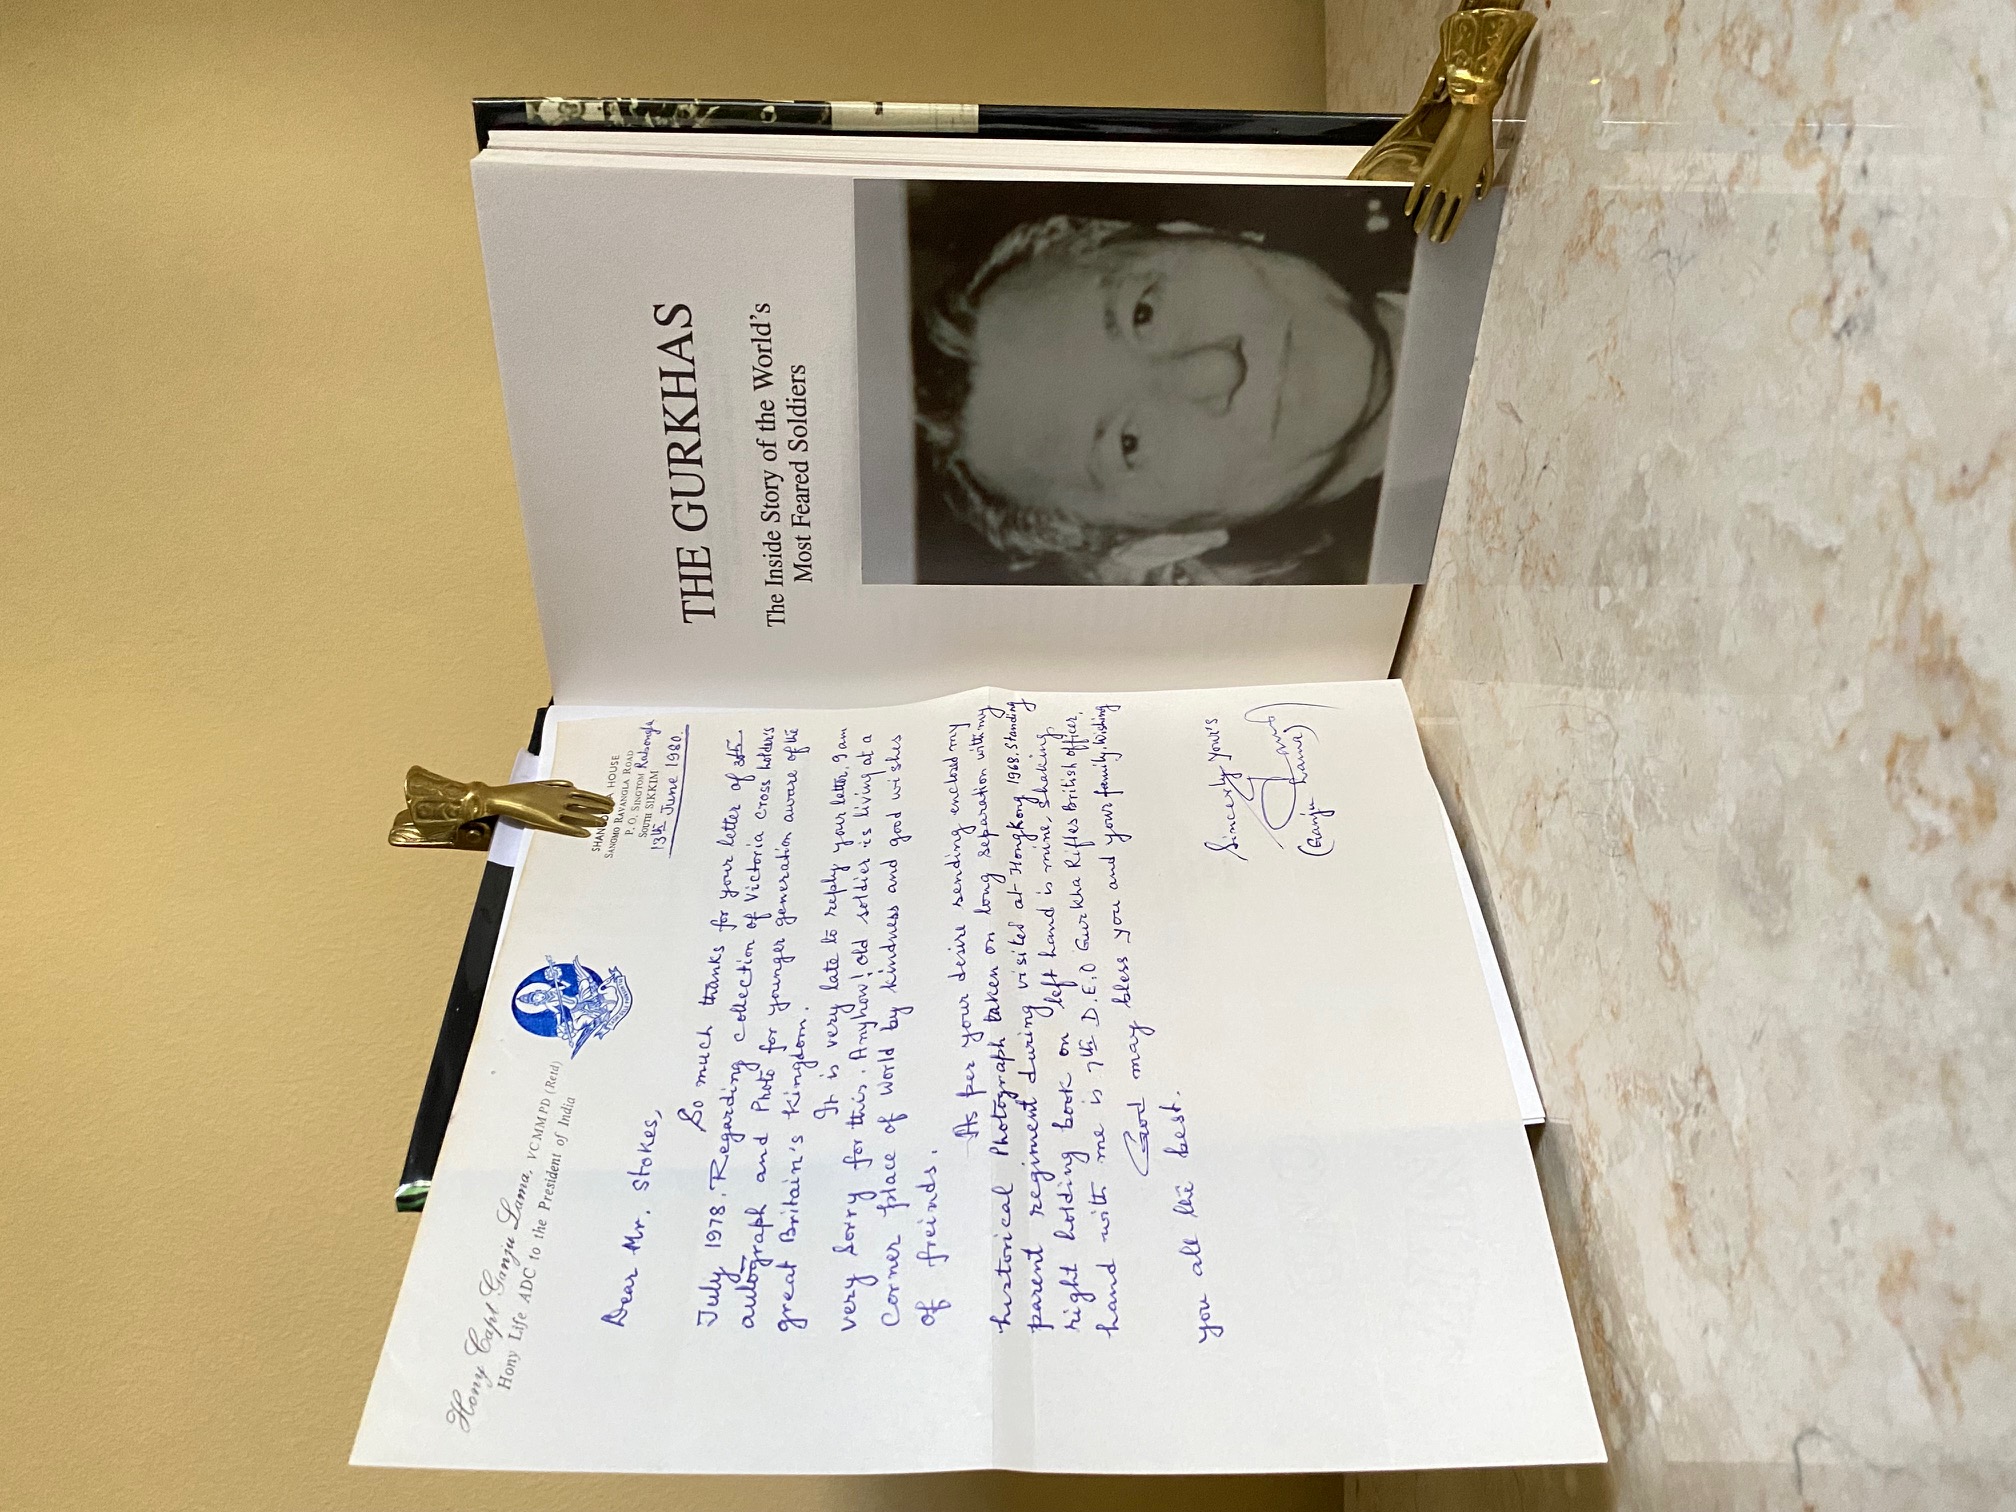 Hony Capt Ganju Lama, VC MM PD (Retd)
Hony Life ADC to the President of India
HOUSE
SANGMO RAVANGLA ROAD
P. O. SINGTOM Rabongla
SOUTH SIKKIM
13th June 1980.
Dear Mr. Stokes,
So much thanks for your letter of
July 1978. Regarding collection of Victoria Cross holder's
autograph and Photo for younger generation aware of the
great Britain's Kingdom.
It is very late to reply your letter, I am
very sorry for this. Anyhow! old soldier is living at a
Corner place of World by kindness and good wishes
of freinds.
As per your desire sending enclosed my
historical Photograph taken on long separation with my
parent regiment during visited at Hongkong 1968, Standing
right holding book on left hand is mine, shaking
hand with me is 7th D.E.O Gurkha Rifles British officer.
God may bless you and your family, wishing
you all the best.
Sincerly your's
(Ganju Lama)
THE GURKHAS
The Inside Story of the World's
Most Feared Soldiers